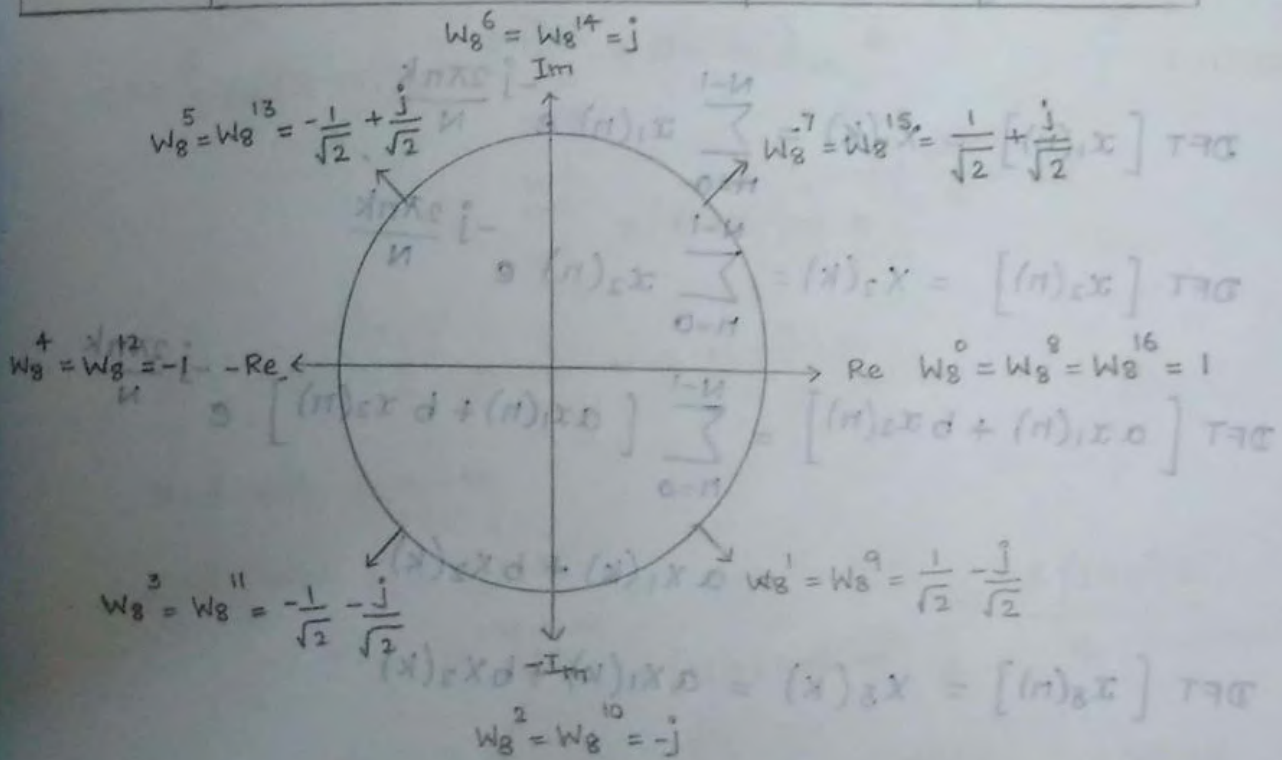 W₈⁶ = W₈¹⁴ = j
Im
W₈⁵ = W₈¹³ = -1/√2 + j/√2
W₈⁷ = W₈¹⁵ = 1/√2 + j/√2
W₈⁴ = W₈¹² = -1
-Re
Re W₈⁰ = W₈⁸ = W₈¹⁶ = 1
W₈³ = W₈¹¹ = -1/√2 - j/√2
W₈¹ = W₈⁹ = 1/√2 - j/√2
-Im
W₈² = W₈¹⁰ = -j